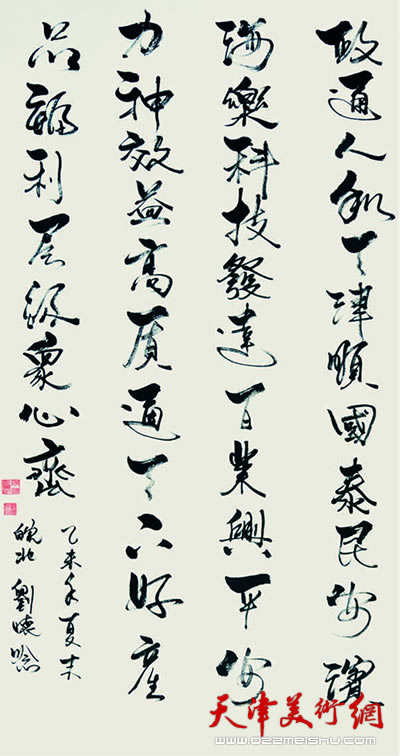 政通人和天津順國泰民安濱
海樂科技發達百業興平安
力神效益高质通天下好產
品福利层級衆心齊
乙未年夏末
皖北劉曉
天津美術網
www.022meishu.com